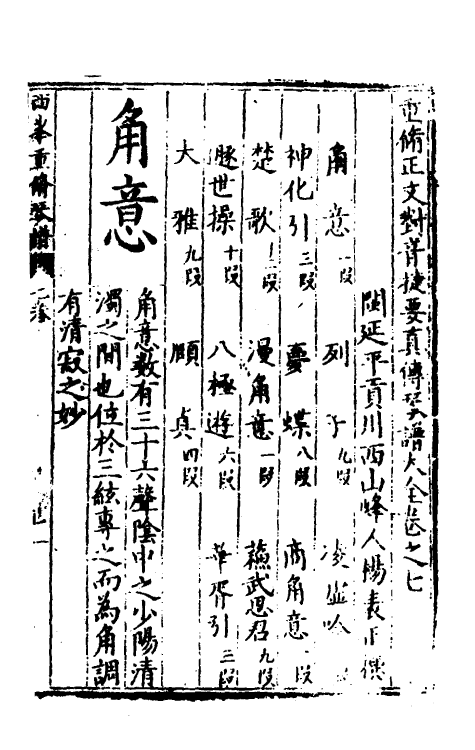 重脩正文對音捷要真傳琴譜大全卷之七
閩延平貢川西山峰人楊表正撰
角意一段 列子九段 凌虛吟
神化引三段 夢蝶八段 商角意一段
楚歌 漫角意一段 蘇武思君九段
遯世操十段 八極遊六段 華胥引三段
大雅九段 頤真四段
角意
角意數有三十六聲陰中之少陽清
濁之間也位於三絃專之而為角調
有清寂之妙
西峯重脩琴譜